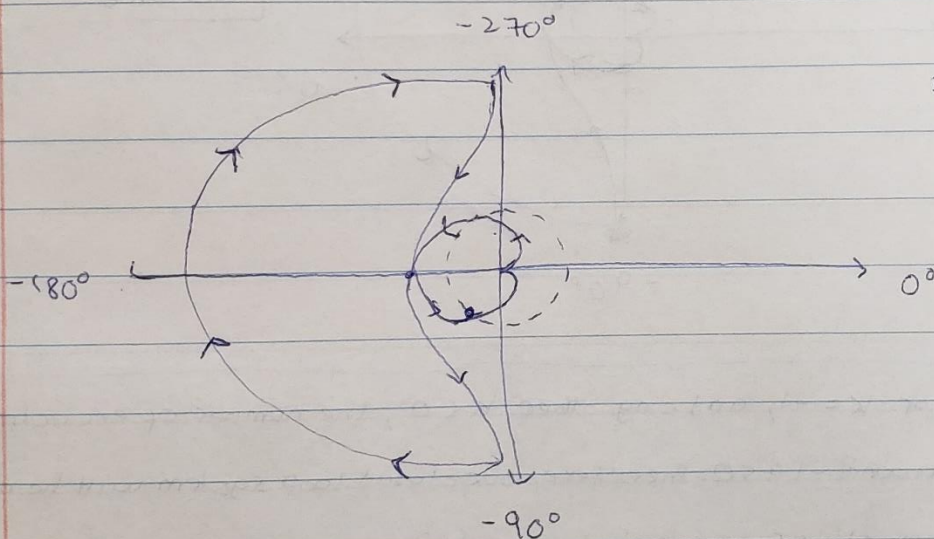 -270°
-180°
0°
-90°